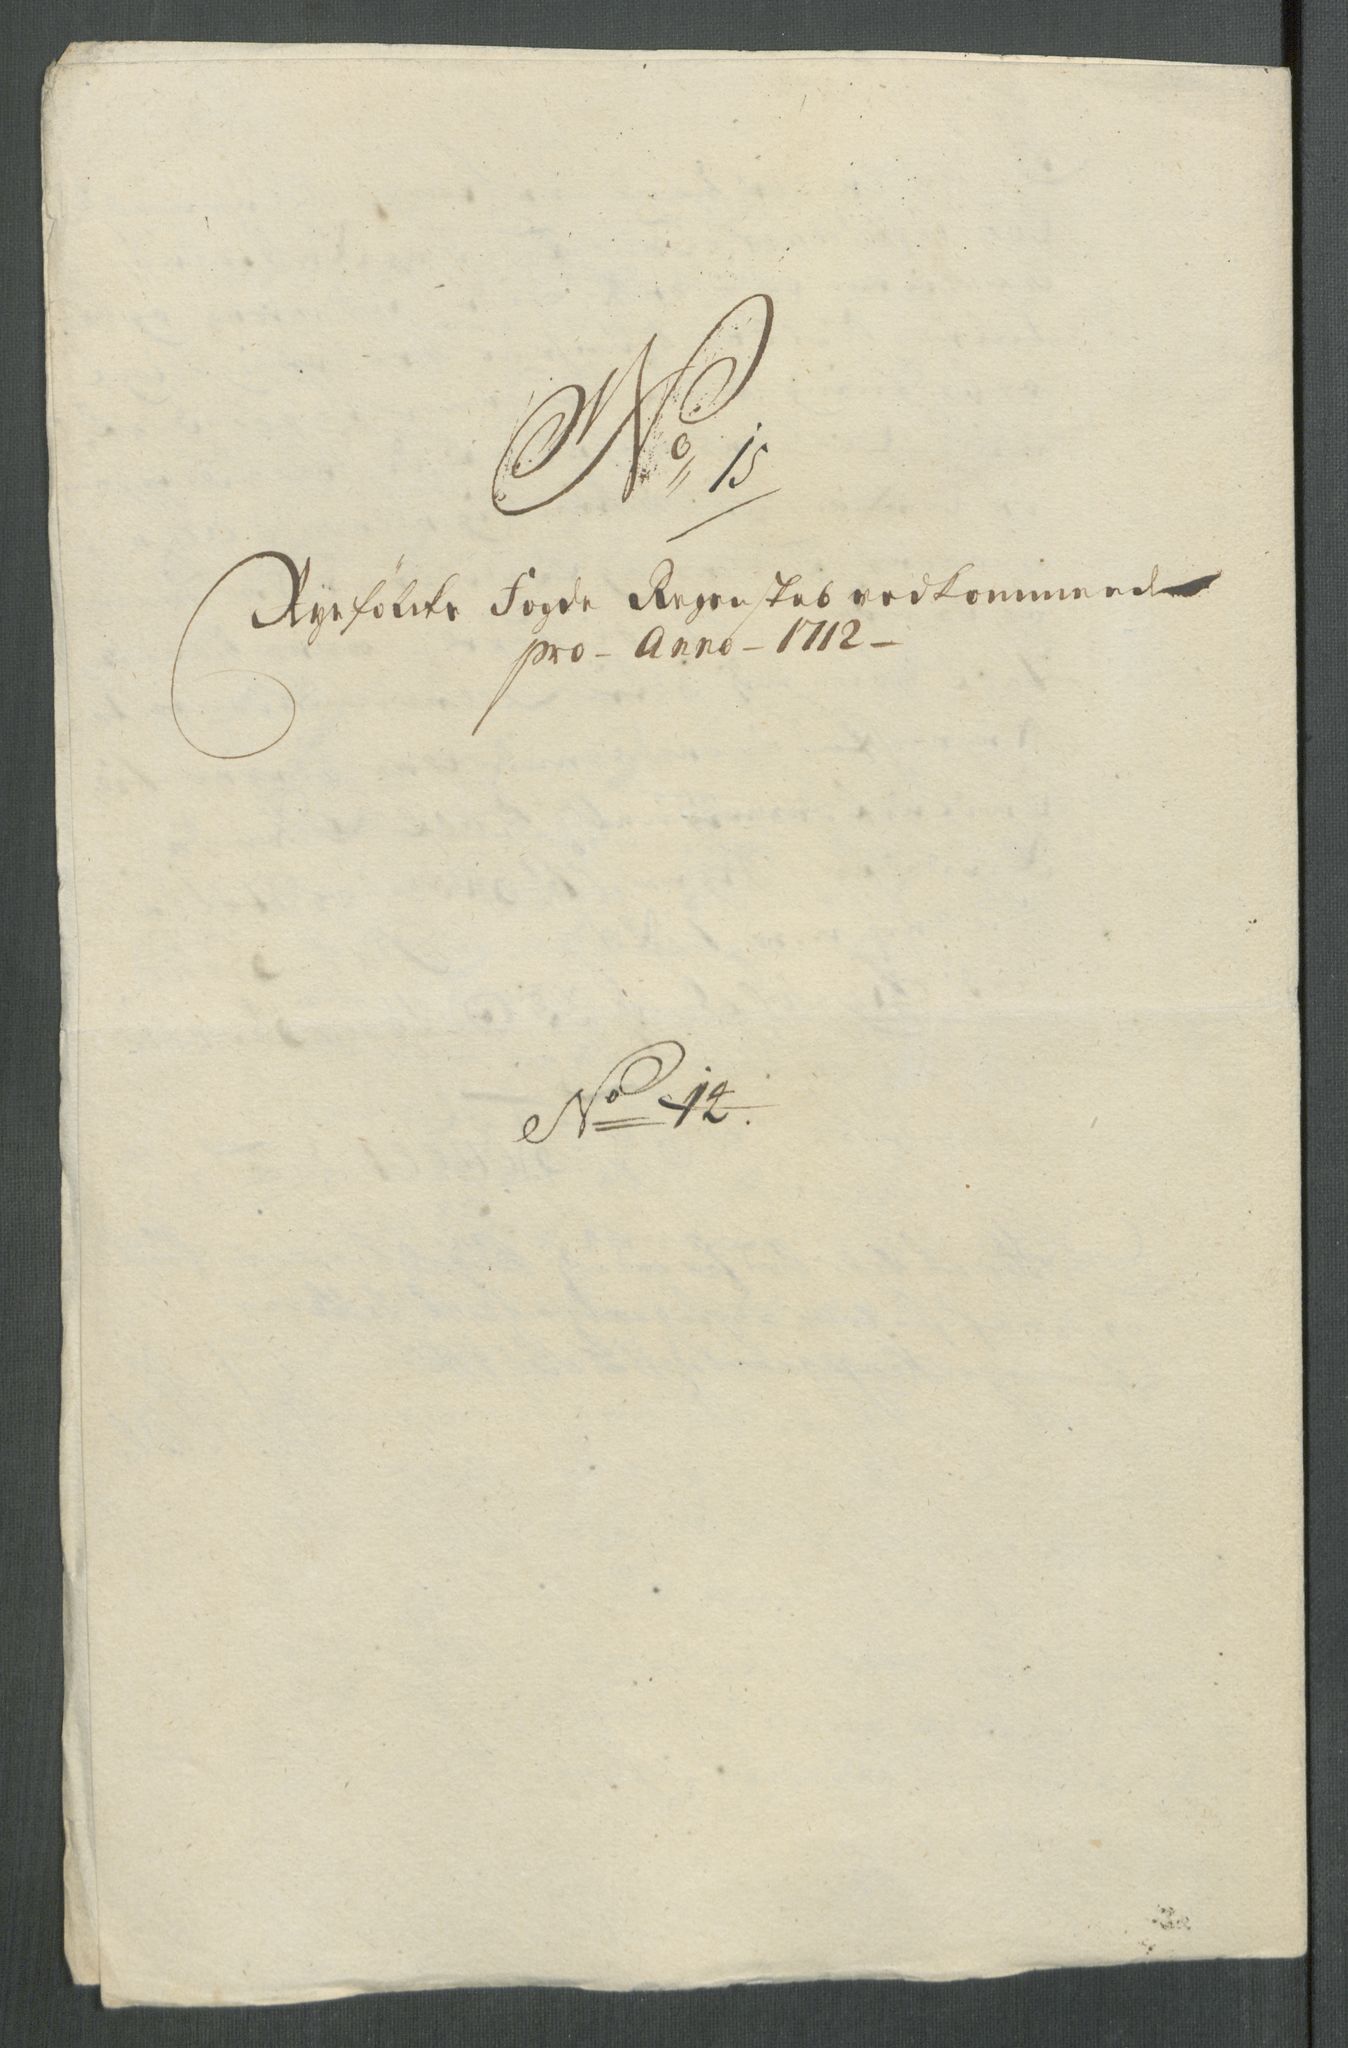 No 15
Ryefölcke Fogde Regenskab vedkommende
pro - Anno - 1712 -
No 12.